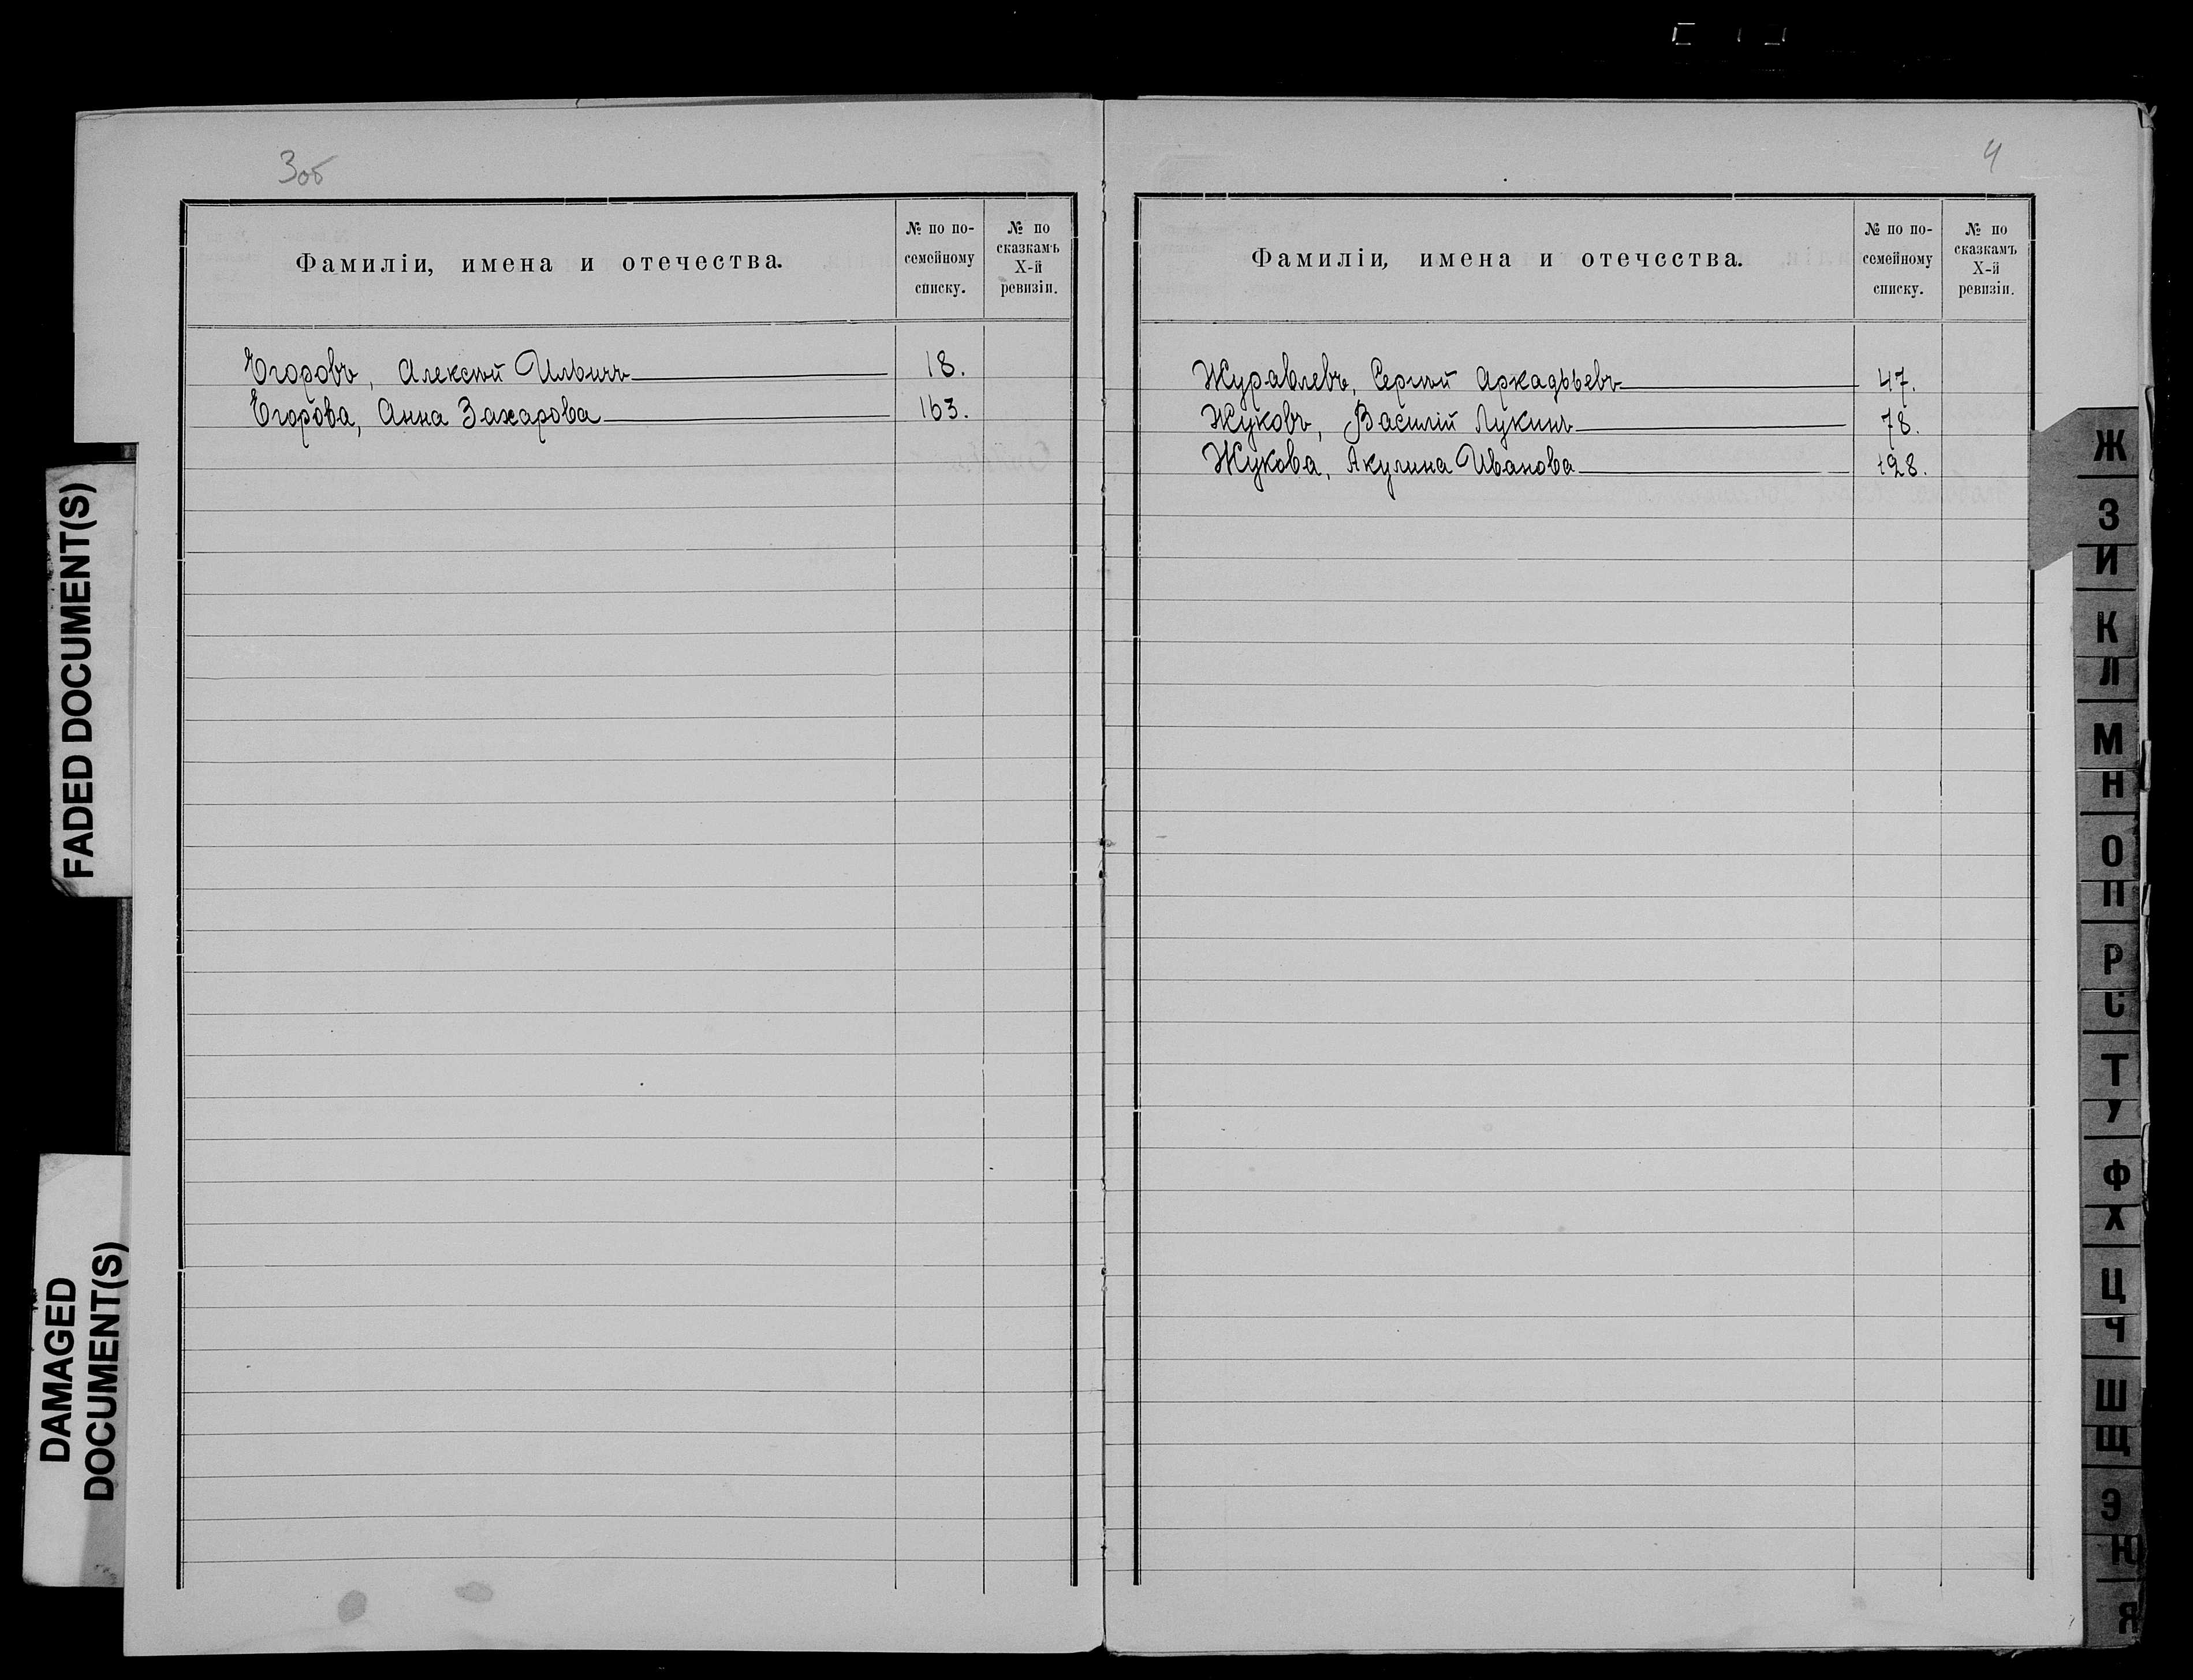 3об
Фамиліи, имена и отечества.
№ по по-
семейному
списку.
№ по
сказкамъ
X-й
ревизіи.
Егоровъ, Алексѣй Ильичъ 18.
Егорова, Анна Захарова 163.
4
Фамиліи, имена и отечества.
№ по по-
семейному
списку.
№ по
сказкамъ
X-й
ревизіи.
Журавлевъ, Сергѣй Аркадьевъ 47.
Жуковъ, Василій Лукинъ 78.
Жукова, Акулина Иванова 128.
Ж
З
И
К
Л
М
Н
О
П
Р
С
Т
У
Ф
Х
Ц
Ч
Ш
Щ
Э
Ю
Я
FADED DOCUMENT(S)
DAMAGED
DOCUMENT(S)